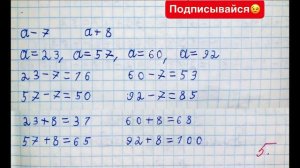 Подписывайся😉
a-7 a+8
a=23, a=57, a=60, a=92
23-7=16 60-7=53
57-7=50 92-7=85
23+8=31 60+8=68
57+8=65 92+8=100
5.